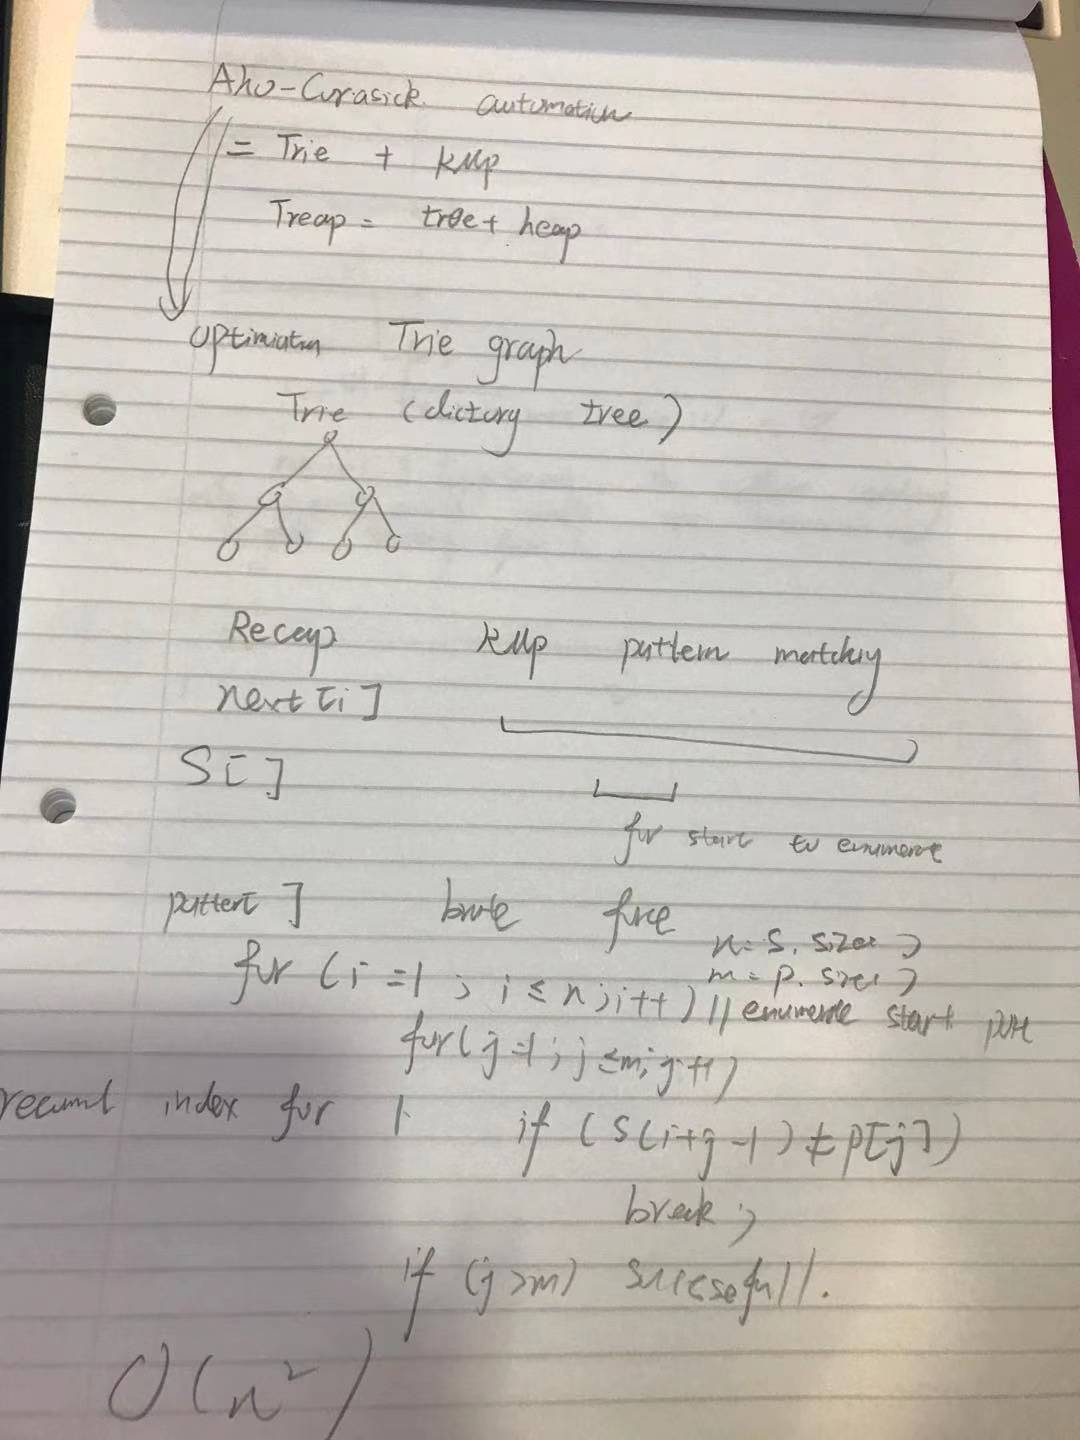 Aho-Corasick automation
= Trie + KMP
Treap = tree + heap
Trie graph
Trie (dictory tree)
Recap KMP pattern matching
next[i]
S[]
for start to enumerate
patter[] brute force
n = s.size()
m = p.size()
for (i=1; i≤n; i++) // enumerate start
for(j=1; j≤m; j++)
index for 1 if (S(i+j-1) ≠ p[j])
break;
if (j>m) sucssefull.
O(n²)